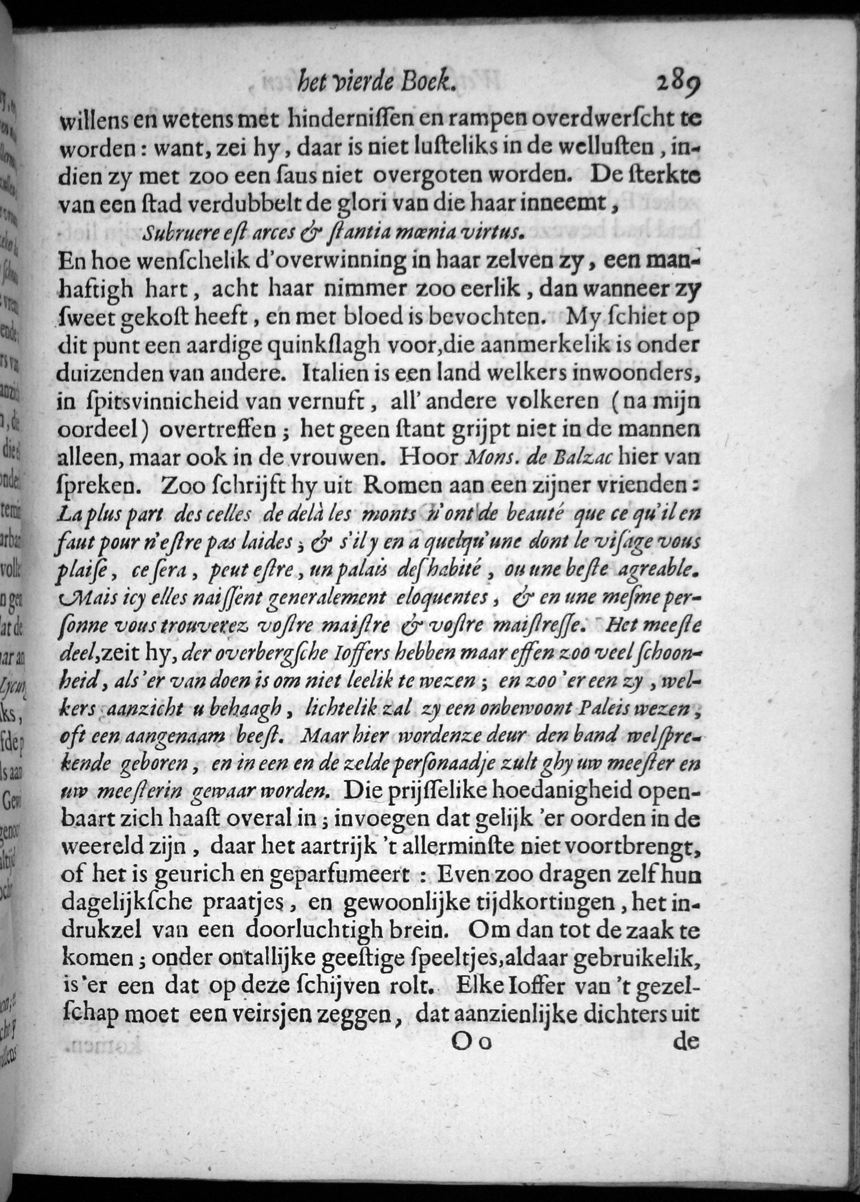 het vierde Boek. 289
willens en wetens met hindernissen en rampen overdwerscht te
worden : want, zei hy, daar is niet lusteliks in de wellusten, in-
dien zy met zoo een saus niet overgoten worden. De sterkte
van een stad verdubbelt de glori van die haar inneemt,
Subruere est arces & stantia mœnia virtus.
En hoe wenschelik d'overwinning in haar zelven zy, een man-
haftigh hart, acht haar nimmer zoo eerlik, dan wanneer zy
sweet gekost heeft, en met bloed is bevochten. My schiet op
dit punt een aardige quinkslagh voor, die aanmerkelik is onder
duizenden van andere. Italien is een land welkers inwoonders,
in spitsvinnicheid van vernuft, all' andere volkeren (na mijn
oordeel) overtreffen ; het geen stant grijpt niet in de mannen
alleen, maar ook in de vrouwen. Hoor Mons. de Balzac hier van
spreken. Zoo schrijft hy uit Romen aan een zijner vrienden :
La plus part des celles de delà les monts n'ont de beauté que ce qu'il en
faut pour n'estre pas laides ; & s'il y en a quelqu'une dont le visage vous
plaise, ce sera, peut estre, un palais deshabité, ou une beste agreable.
Mais icy elles naissent generalement eloquentes, & en une mesme per-
sonne vous trouverez vostre maistre & vostre maistresse. Het meeste
deel, zeit hy, der overbergsche Ioffers hebben maar effen zoo veel schoon-
heid, als 'er van doen is om niet leelik te wezen ; en zoo 'er een zy, wel-
kers aanzicht u behaagh, lichtelik zal zy een onbewoont Paleis wezen,
oft een aangenaam beest. Maar hier wordenze deur den band welspre-
kende geboren, en in een en de zelde personaadje zult ghy uw meester en
uw meesterin gewaar worden. Die prijsselike hoedanigheid open-
baart zich haast overal in ; invoegen dat gelijk 'er oorden in de
weereld zijn, daar het aartrijk 't allerminste niet voortbrengt,
of het is geurich en geparfumeert : Even zoo dragen zelf hun
dagelijksche praatjes, en gewoonlijke tijdkortingen, het in-
drukzel van een doorluchtigh brein. Om dan tot de zaak te
komen ; onder ontallijke geestige speeltjes, aldaar gebruikelik,
is 'er een dat op deze schijven rolt. Elke Ioffer van 't gezel-
schap moet een veirsjen zeggen, dat aanzienlijke dichters uit
Oo de